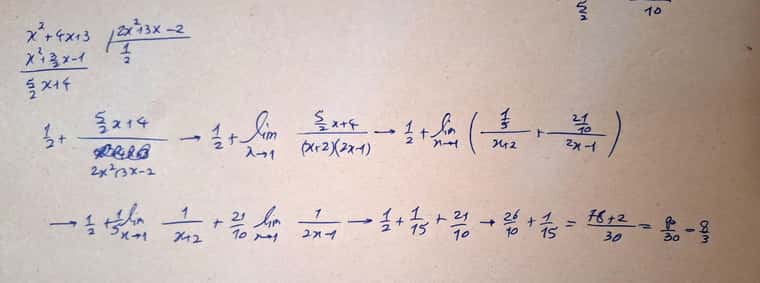 5/2 10
x²+4x+3 | 2x²+3x-2
x²+3/2x-1 1/2
5/2x+4
1/2 + (5/2x+4)/(2x²+3x-2) → 1/2 + lim x→1 (5/2x+4)/((x+2)(2x-1)) → 1/2 + lim x→1 ( (1/5)/(x+2) + (21/10)/(2x-1) )
→ 1/2 + 1/5 lim x→1 1/(x+2) + 21/10 lim x→1 1/(2x-1) → 1/2 + 1/15 + 21/10 → 26/10 + 1/15 = (78+2)/30 = 80/30 - 8/3